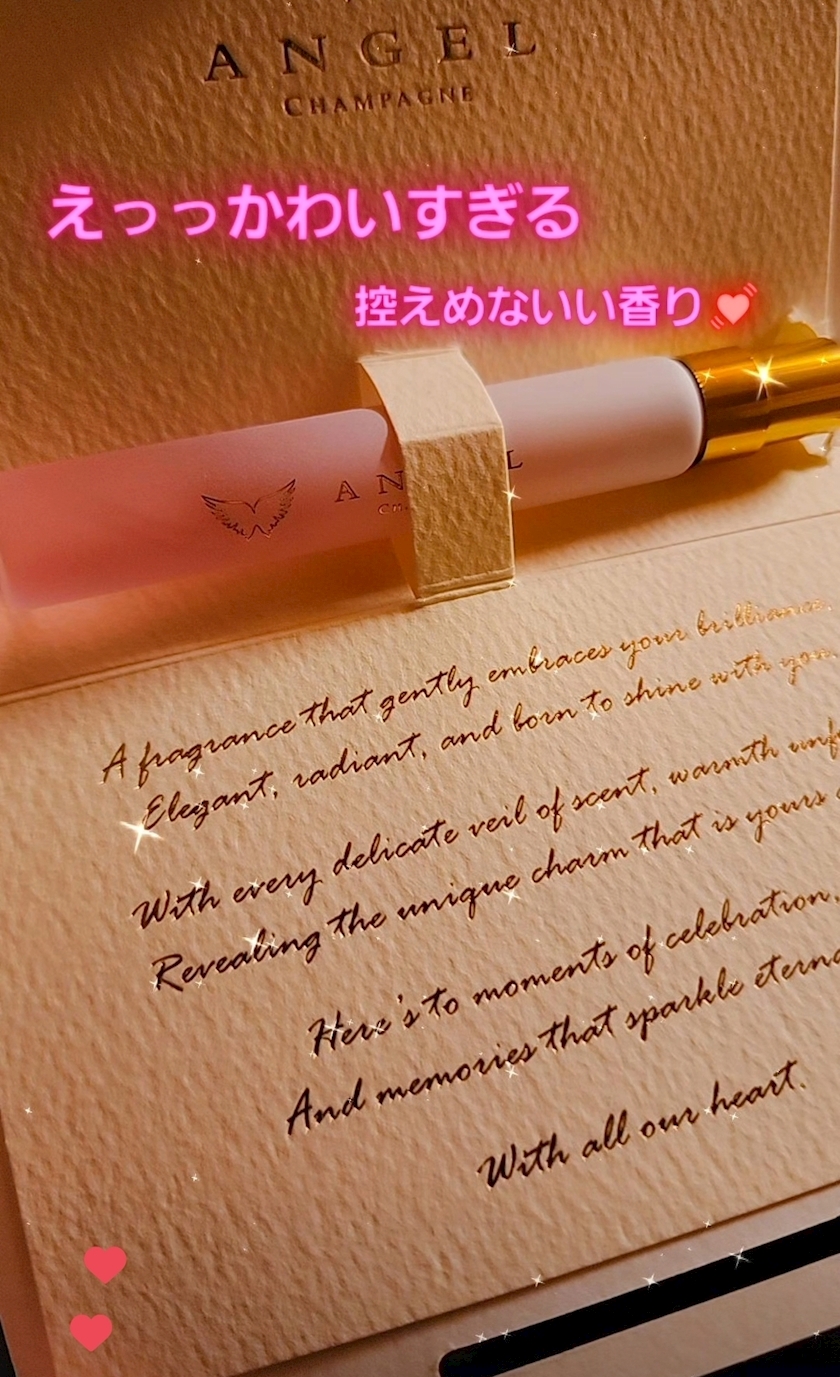 ANGEL
CHAMPAGNE
えっっかわいすぎる
控えめないい香り
A fragrance that gently embraces your brilliance.
Elegant, radiant, and born to shine with you.
With every delicate veil of scent, warmth
Revealing the unique charm that is yours
Here's to moments of celebration,
And memories that sparkle
With all our heart.